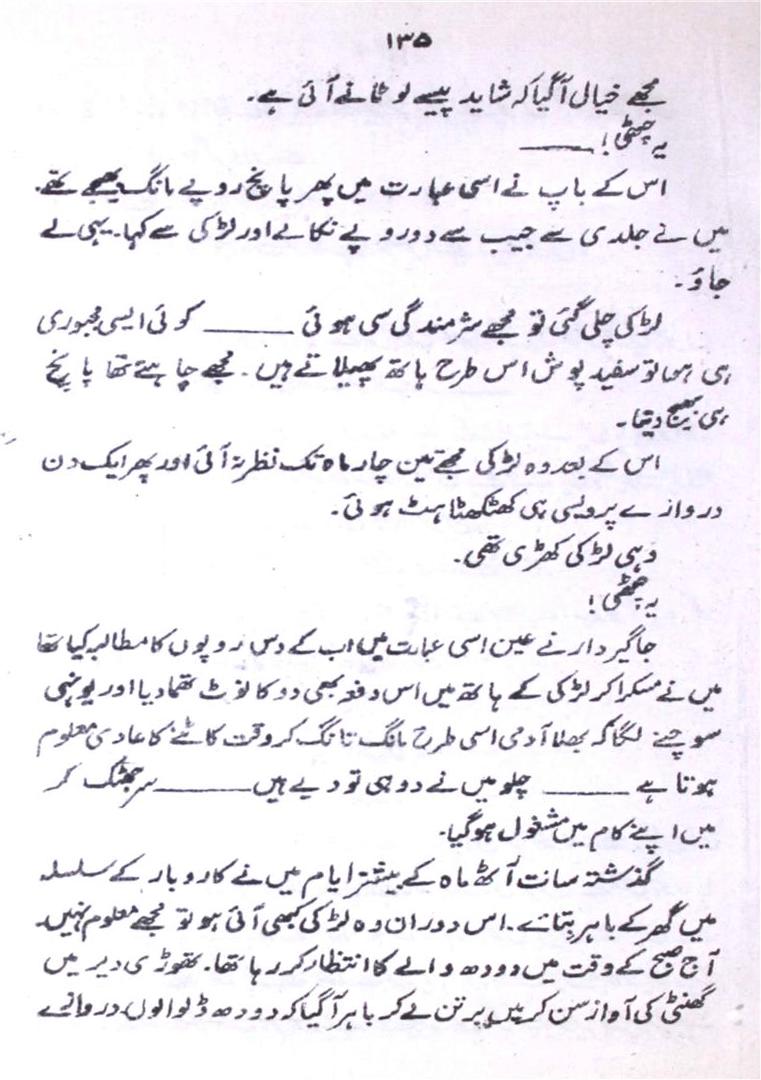 ۱۳۵
مجھے خیال آگیا کہ شاید پیسے لوٹانے آئی ہے۔
یہ چٹھی! ____
اس کے باپ نے اسی عبارت میں پھر پانچ روپے مانگ بھیجے تھے۔
میں نے جلدی سے جیب سے دو روپے نکالے اور لڑکی سے کہا۔ یہی لے
جاؤ۔
لڑکی چلی گئی تو مجھے شرمندگی سی ہوئی ____ کوئی ایسی مجبوری
ہی ہو تو سفید پوش اس طرح ہاتھ پھیلاتے ہیں۔ مجھے چاہئے تھا پانچ
ہی بھیج دیتا۔
اس کے بعد وہ لڑکی مجھے تین چار ماہ تک نظر نہ آئی اور پھر ایک دن
دروازے پر ویسی ہی کھٹکھٹاہٹ ہوئی۔
وہی لڑکی کھڑی تھی۔
یہ چٹھی!
جاگیردار نے عین اسی عبارت میں اب کے دس روپوں کا مطالبہ کیا تھا
میں نے مسکرا کر لڑکی کے ہاتھ میں اس دفعہ بھی دو کا نوٹ تھما دیا اور یونہی
سوچنے لگا کہ بھلا آدمی اسی طرح مانگ تانگ کر وقت کاٹنے کا عادی معلوم
ہوتا ہے ____ چلو میں نے دو ہی تو دیے ہیں ____ سر جھٹک کر
میں اپنے کام میں مشغول ہوگیا۔
گذشتہ سات آٹھ ماہ کے بیشتر ایام میں نے کاروبار کے سلسلہ
میں گھر کے باہر بتائے۔ اس دوران وہ لڑکی کبھی آئی ہو تو مجھے معلوم نہیں۔
آج صبح کے وقت میں دودھ والے کا انتظار کر رہا تھا۔ تھوڑی دیر میں
گھنٹی کی آواز سن کر میں برتن لے کر باہر آگیا کہ دودھ ڈلوا لوں۔ دروازے